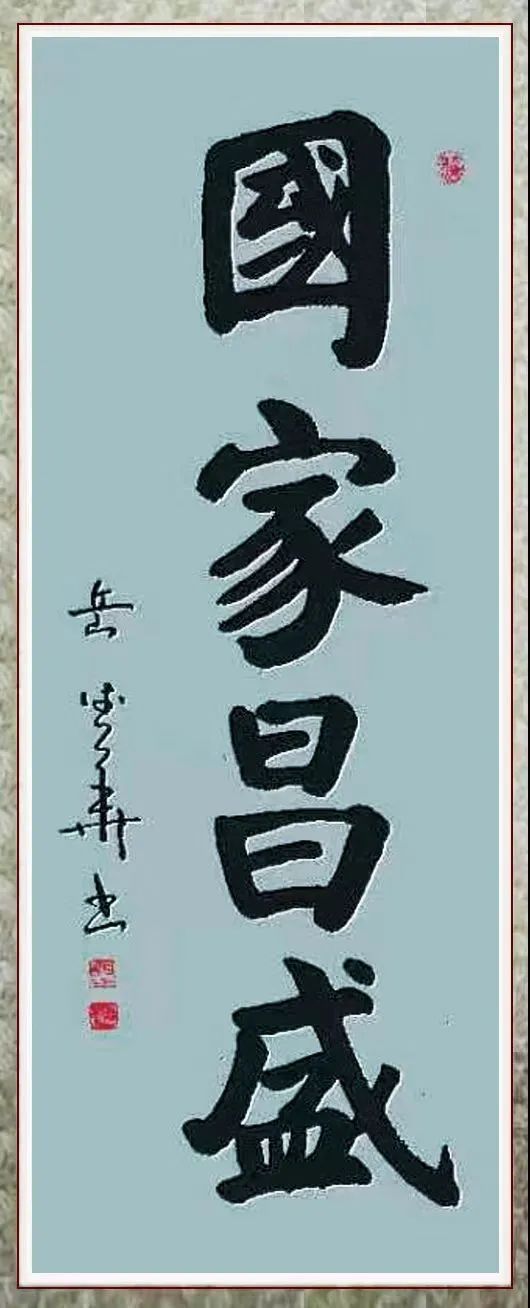 國家昌盛
岳